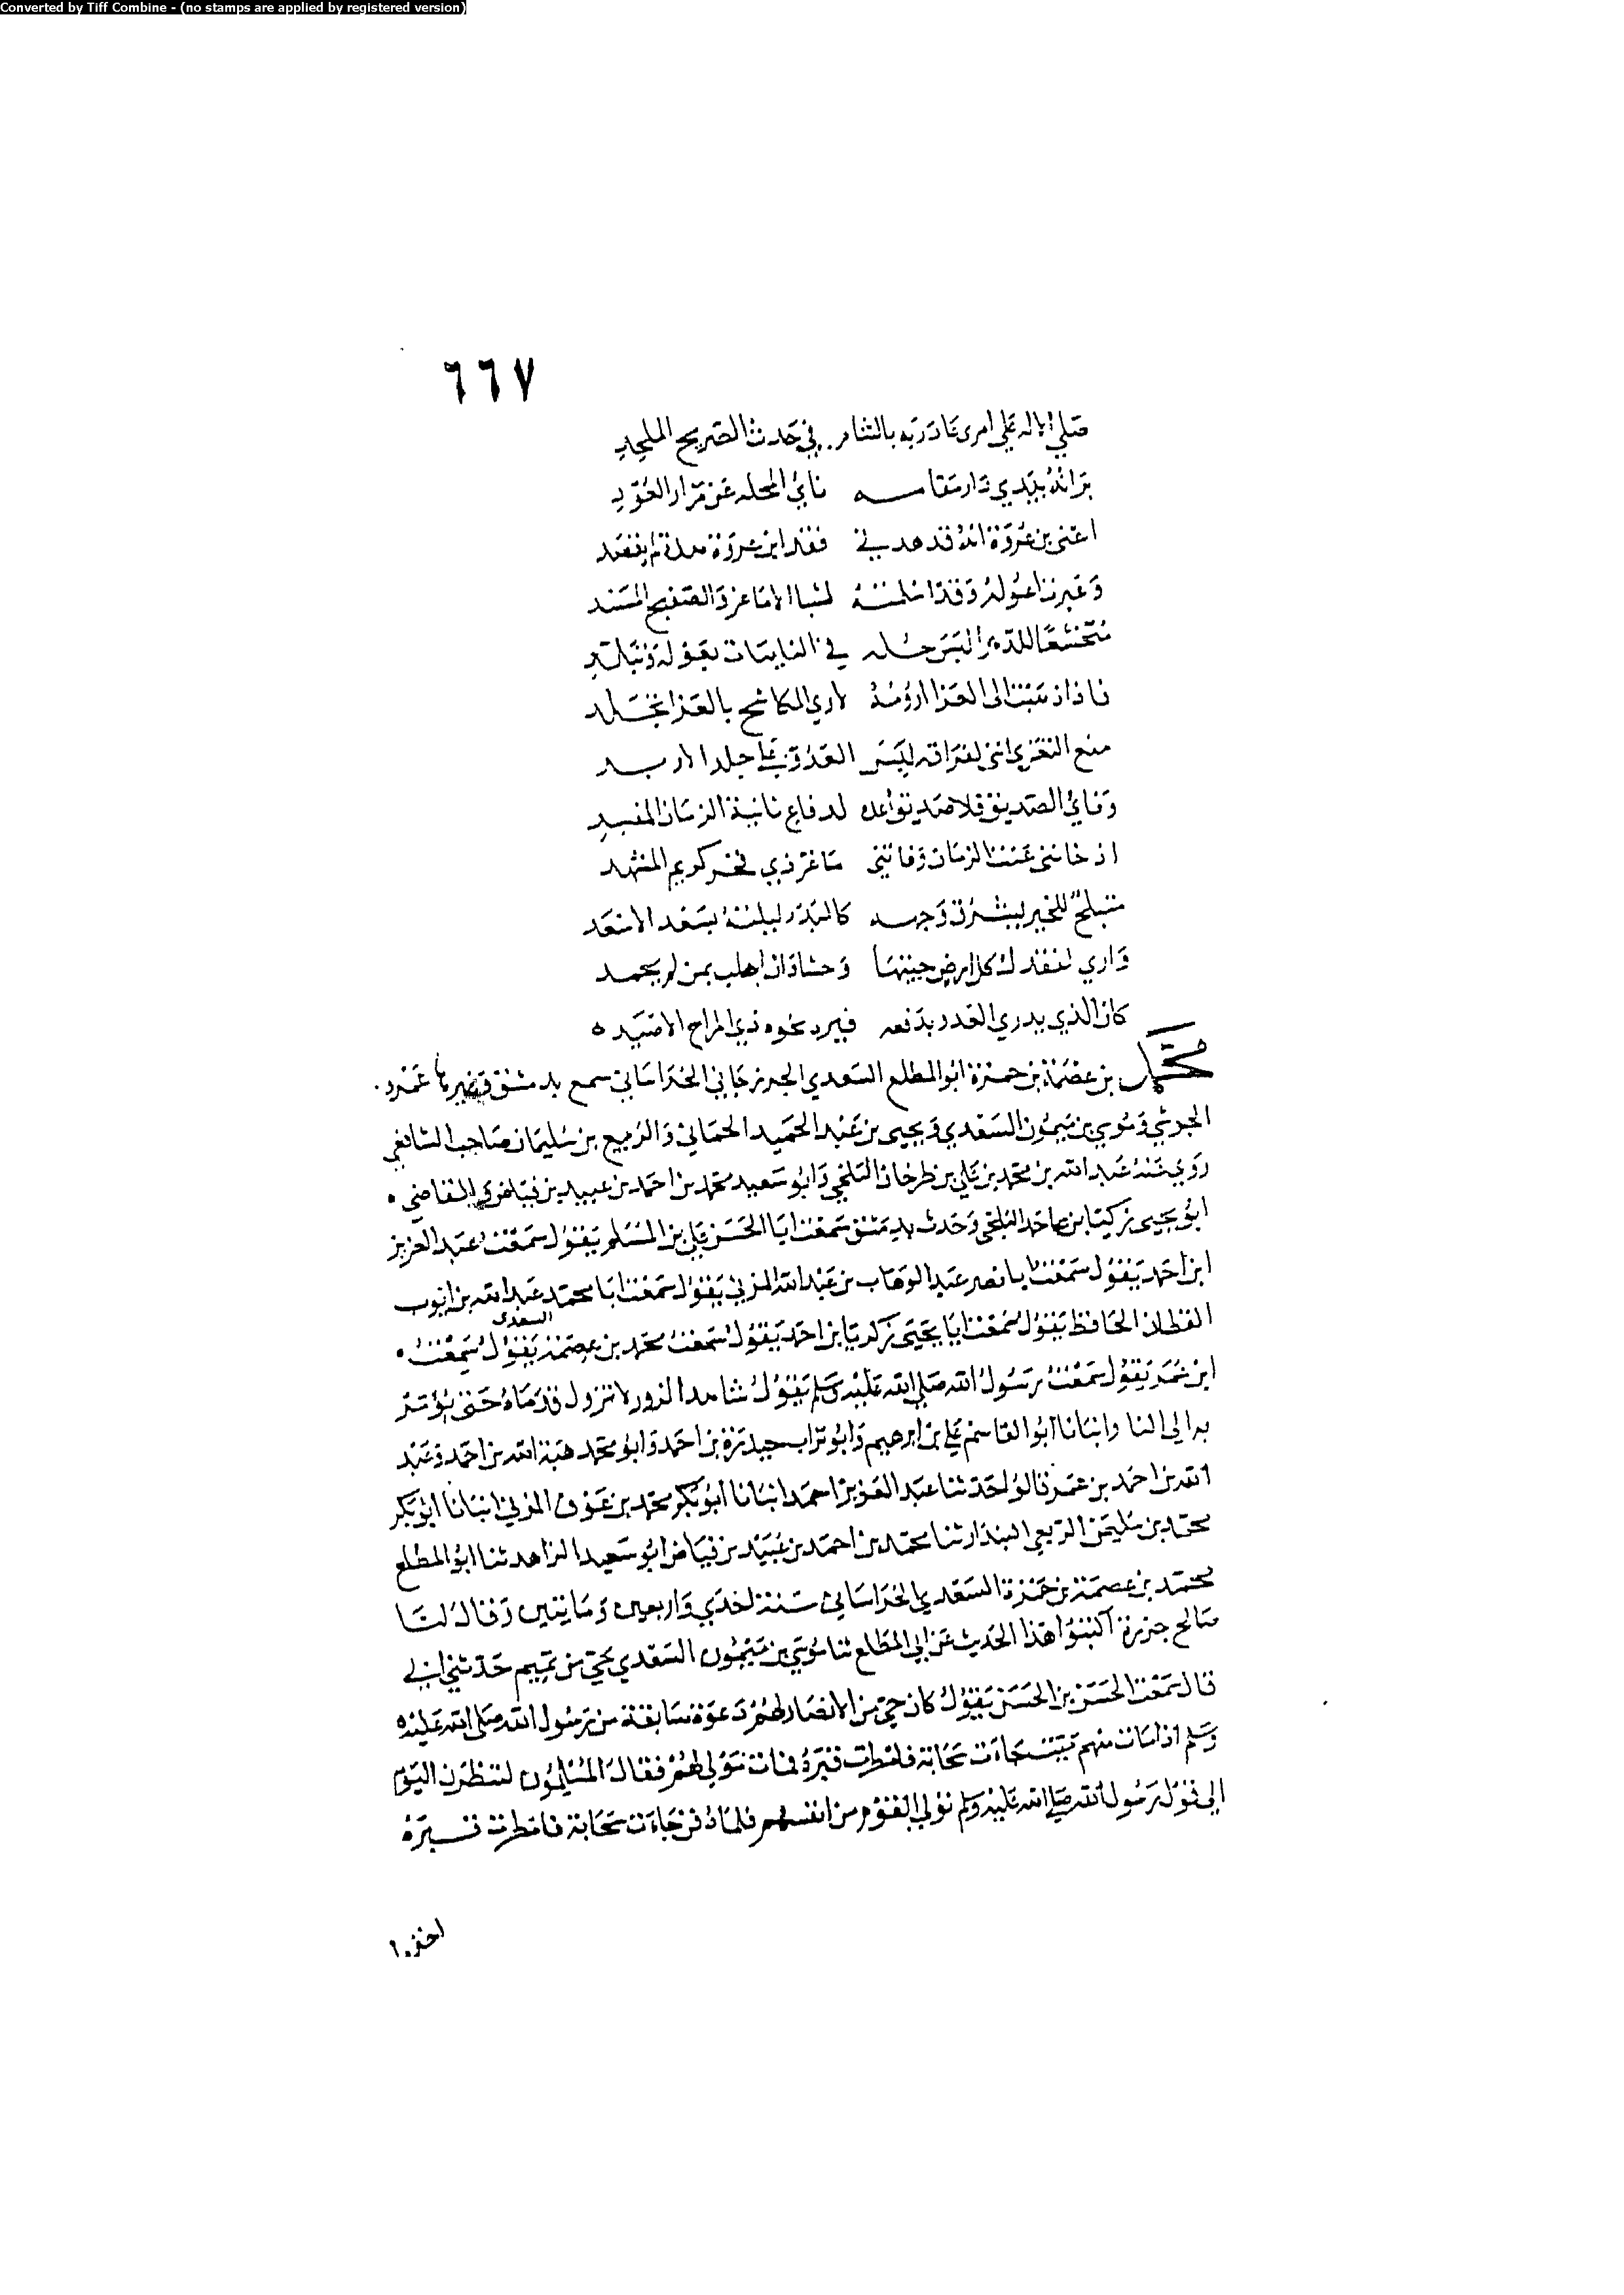 Converted by Tiff Combine - (no stamps are applied by registered version)
٦٦٧
صلى الاله على امرى غادرته بالشام في جدث الضريح الملحد
براته بيدي دار مقامه نائي المحله عن مزار العود
اعني بن عروة انه قد هدني فقد ابن عروة هدة لم يقصد
متخشعا للدهر البس حله في النايبات
فاذا ذهبت الى العزا ارومه لاري المكاشح بالعزا تجلد
منع التعزي انني لفراقه لبس العدو على جلد الاربد
وناي الصديق فلا صديق اعده لدفاع نايبة الزمان المفسد
اذ خانني عنت الزمان وفاتني ما غر ذي فخر كريم المشهد
متبلج للخير يشرق وجهه كالبدر ليلته بسعد الاسعد
واري لفقدك كل ارض جيتها وحشا وان اهلت بمن لم يحمد
كان الذي يدري العدو بدفعه فيرد نخوه ذي المراح الاصيد
محمد بن عصمة بن حمزة ابو المطلع السعدي الجوزجاني الخراساني سمع بدمشق وغيرها عمرو
الجوشي وموسى بن ميمون السعدي ويحيى بن عبد الحميد الحماني والربيع بن سليمان صاحب الشافعي
روى عنه عبد الله بن محمد بن علي بن طرخان البلخي وابو سعيد محمد بن احمد بن عبيد بن فياض والقاضي
ابو يحيى زكريا بن احمد البلخي وحدث بدمشق سمعت ابا الحسن علي بن المسلم يقول سمعت عبد العزيز
ابن احمد يقول سمعت ابا نصر عبد الوهاب بن عبد الله المزني يقول سمعت ابا محمد عبد الله بن ايوب
القطان الحافظ يقول سمعت ابا يحيى زكريا بن احمد يقول سمعت محمد بن عصمة السعدي يقول سمعت
ابن عمر يقول سمعت رسول الله صلى الله عليه وسلم يقول شاهد الزور لا تزول قدماه حتى يؤمر
به الى النا وانبانا ابو القاسم علي بن ابرهيم وابو تراب حيدرة بن احمد وابو محمد هبة الله بن احمد وعبد
الله بن احمد بن عمر قالوا حدثنا عبد العزيز بن احمد انبانا ابو بكر محمد بن عوف المزني انبانا ابو بكر
محمد بن سليمن الربعي البندار ثنا محمد بن احمد بن عبيد بن فياض ابو سعيد الزاهد ثنا ابو المطلع
محمد بن عصمة بن حمزة السعدي الخراساني سنة احدى واربعين ومايتين وقال لنا
صالح جزرة اكتبوا هذا الحديث عن ابي المطلع ثنا موسى بن ميمون السعدي يحيى من تميم حدثني ابي
قال سمعت الحسن بن الحسن يقول كان حي من الانصار لهم دعوة سابقة من رسول الله صلى الله عليه
وسلم اذا مات منهم ميت جاءت سحابة فامطرت قبره فمات مولى لهم فقال المسلمون لننظرن اليوم
الى قول رسول الله صلى الله عليه وسلم مولى القوم من انفسهم فلما دفن جاءت سحابة فامطرت قبره